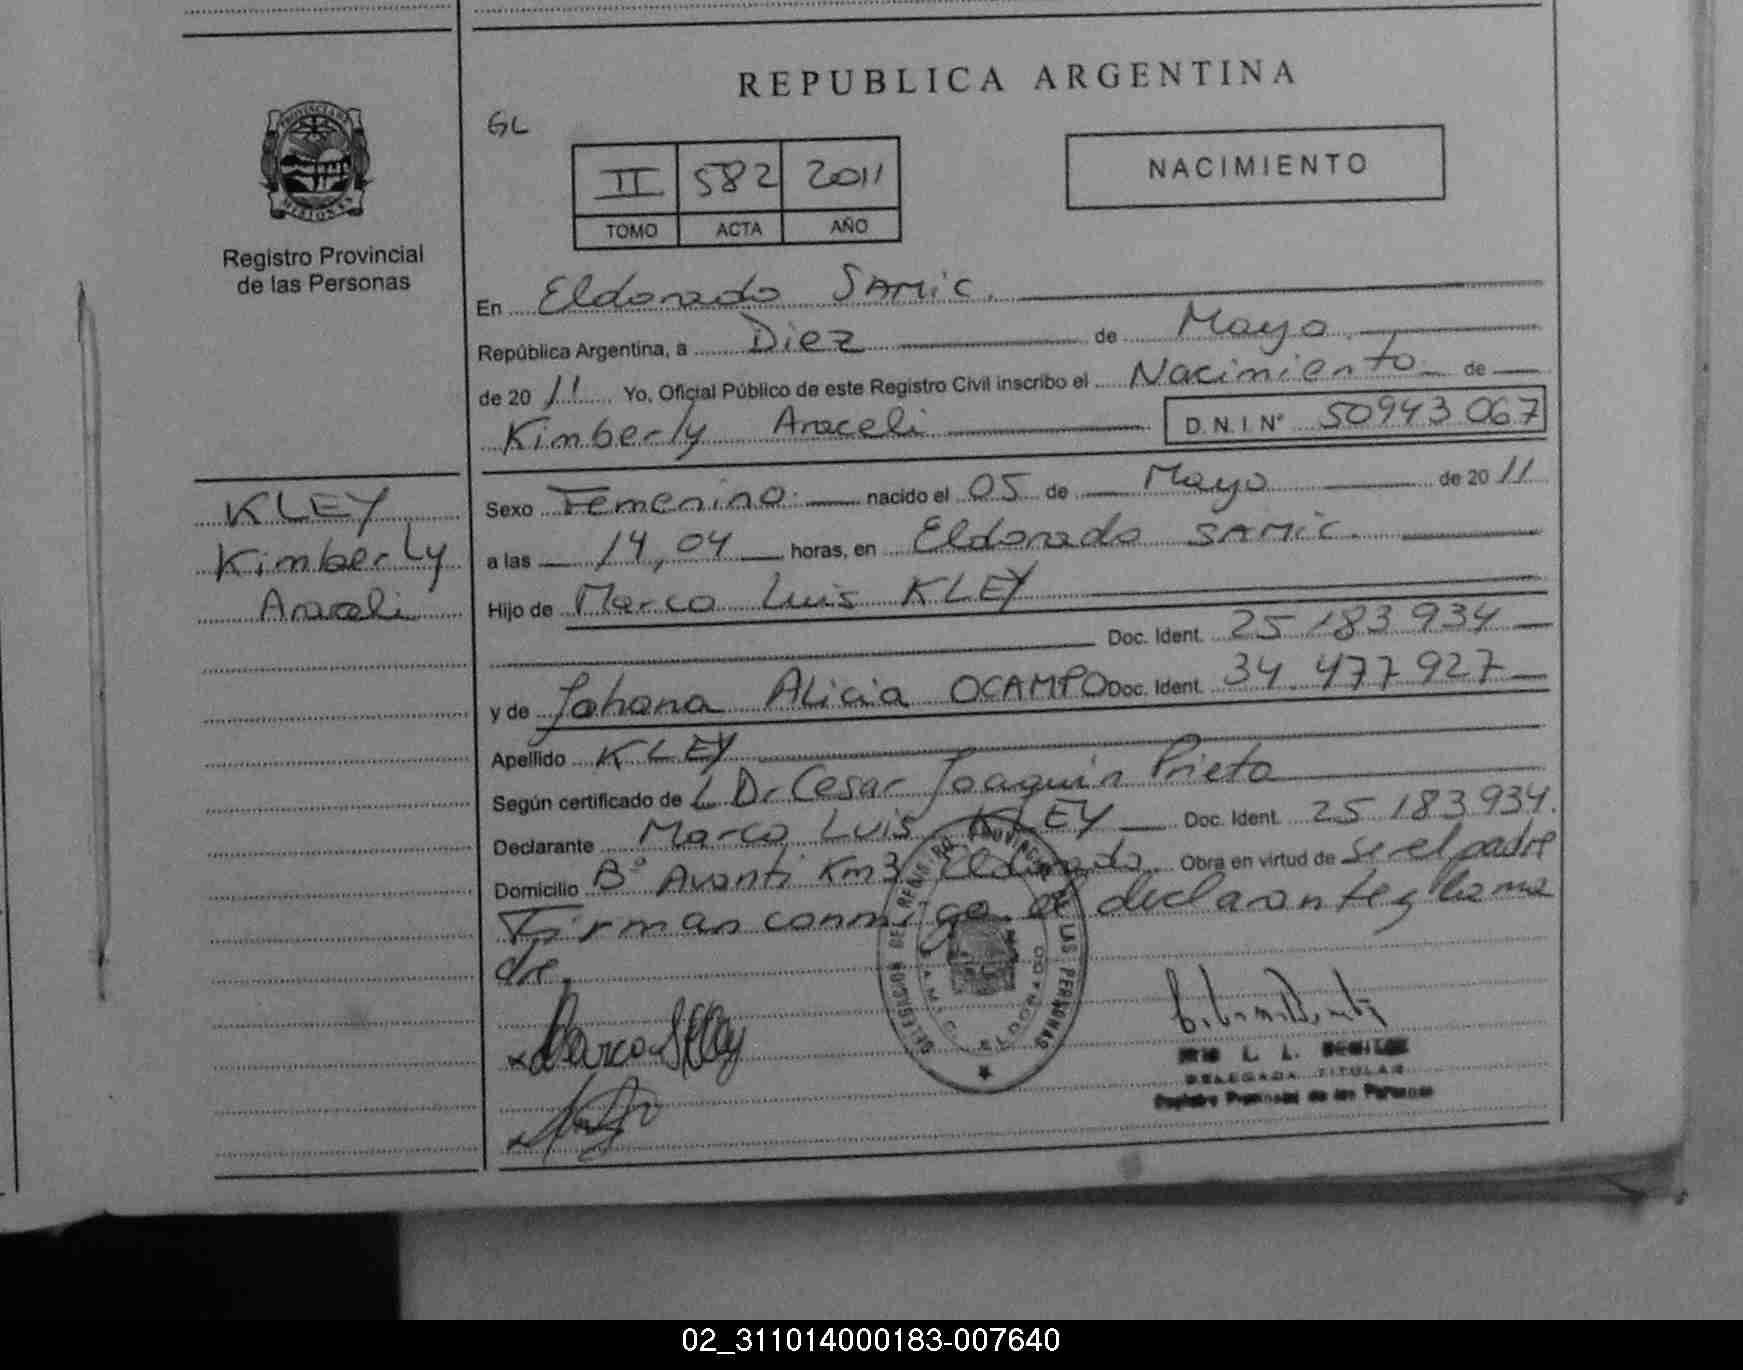 REPUBLICA ARGENTINA
GL
II 582 2011
TOMO ACTA AÑO
NACIMIENTO
PROVINCIA DE MISIONES
Registro Provincial
de las Personas
En Eldorado SAMIC.
República Argentina, a Diez de Mayo
de 20 11 Yo, Oficial Público de este Registro Civil inscribo el Nacimiento de
Kimberly Araceli D.N.I Nº 50943067
KLEY
Kimberly
Araceli
Sexo Femenino. nacido el 05 de Mayo de 20 11
a las 14,04 horas, en Eldorado SAMIC.
Hijo de Marco Luis KLEY
Doc. Ident. 25 183 934
y de Johana Alicia OCAMPO Doc. Ident. 34.477 927
Apellido KLEY
Según certificado de L Dr Cesar Joaquin Prieto
Declarante Marco Luis KLEY Doc. Ident. 25 183 934.
Domicilio Bº Avanti Km3 Eldorado Obra en virtud de se el padre
Firman conmigo el declarante y la ma
dre.
DELEGACION DEL REGISTRO PROVINCIAL DE LAS PERSONAS
S.A.M.I.C. ELDORADO
Marco Kley
DELEGADA TITULAR
Registro Provincial de las Personas
02_311014000183-007640